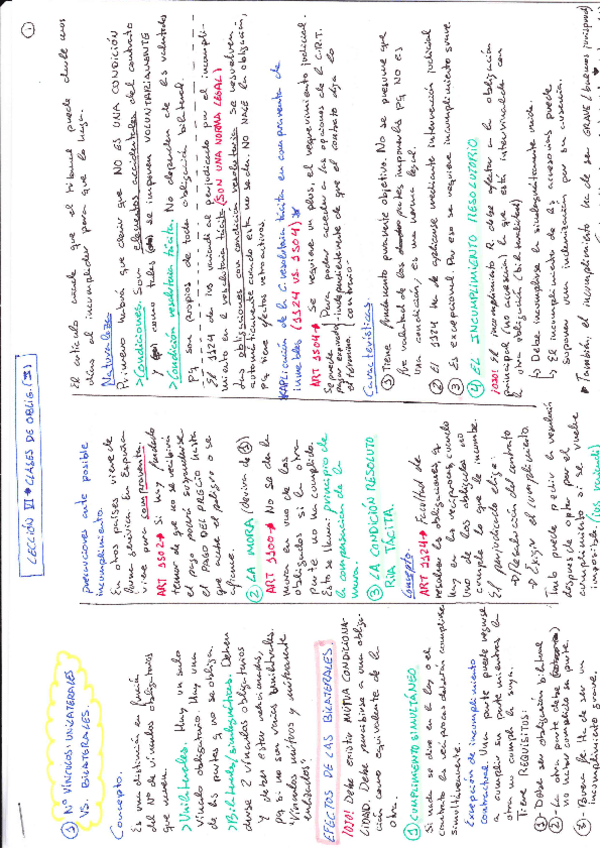 LECCIÓN VI → CLASES DE OBLIG. (II)
① Nº VÍNCULOS: UNILATERALES
VS. BILATERALES.
Concepto.
Es una distinción en función
del Nº de vínculos obligatorios
que unen.
> Unilaterales. Hay un solo
vínculo obligatorio. Hay una
de las partes q no se obliga.
> Bilaterales/sinalagmáticas. Deben
darse 2 vínculos obligatorios
y deben estar relacionados,
pq si no son varias unilaterales.
"Vínculos mutuos y mutuamente
enlazados"
EFECTOS DE LAS BILATERALES.
¡OJO! Debe existir MUTUA CONDICIONA-
LIDAD. Debe percibirse a una obliga-
ción como equivalente de la
otra.
① CUMPLIMIENTO SIMULTÁNEO
Si nada se dice en la ley o el
contrato las recíprocas deberán cumplirse
simultáneamente.
Excepción de incumplimiento
contractual. Una parte puede negarse
a cumplir su parte mientras la
otra no cumpla la suya.
Tiene REQUISITOS:
①- Debe ser obligación bilateral
②- La otra parte debe
no haber cumplido su parte.
③- Buena fe. Ha de ser un
incumplimiento grave.
precauciones ante posible
incumplimiento.
En otros países viene de
forma genérica en España
viene para compraventa.
ART 1502 → Si hay fundado
temor de que no se recibirá
el pago podrá suspenderse
el PAGO DEL PRECIO hasta
que acabe el peligro o se
afiance.
② LA MORA (deriva de ①)
ART 1100 → No se da la
mora en uno de los
obligados si la otra
parte no ha cumplido.
Esto se llama: principio de
la compensación de la
mora.
③ LA CONDICIÓN RESOLUTO
RIA TÁCITA.
Concepto
ART 1124 → Facultad de
resolver las obligaciones q
hay en las recíprocas cuando
uno de los obligados no
cumple lo que le incumbe.
El perjudicado elige:
→ Resolución del contrato
→ Exigir el cumplimiento.
Tmb puede pedir la resolución
después de optar por el
cumplimiento si se vuelve
imposible
El artículo añade que el tribunal puede darle unos
días al incumplidor para que lo haga.
Naturaleza
Primero habrá que decir que NO ES UNA CONDICIÓN
> Condiciones. Son elementos accidentales del contrato
y como tales se imponen VOLUNTARIAMENTE
> Condición resolutoria tácita. No dependen de las voluntades
pq son propias de toda obligación bilateral.
El 1124 de los vacíada al perjudicado por el incumpli-
miento en la resolutoria tácita (SON UNA NORMA LEGAL)
Las obligaciones con condición resolutoria se resuelven
automáticamente cuando esta se da. NO NACE la obligación,
pq tiene efectos retroactivos.
Aplicación de la C. resolutoria tácita en compraventa de
inmuebles (1124 VS. 1504)
ART 1504 → Se requiere un plus, el requerimiento judicial.
Para poder acceder a las opciones de la C.R.T.
independientemente de que el contrato diga lo
contrario
Se puede
pagar expirado
el término.
Características.
① Tiene fundamento puramente objetivo. No se presume que
fue voluntad de las partes imponerla pq NO es
una condición, es una norma legal.
② El 1124 ha de aplicarse mediante intervención judicial
③ Es excepcional. Por eso se requiere incumplimiento grave.
④ EL INCUMPLIMIENTO RESOLUTORIO
¡OJO! El incumplimiento R. debe afectar a la obligación
principal (no accesoria) la que está intervinculada con
otra obligación (bilateralidad)
↳ Debe incumplirse la sinalagmáticamente unida.
↳ El incumplimiento de las accesorias puede
suponer una indemnización por su ausencia.
* También, el incumplimiento ha de ser GRAVE